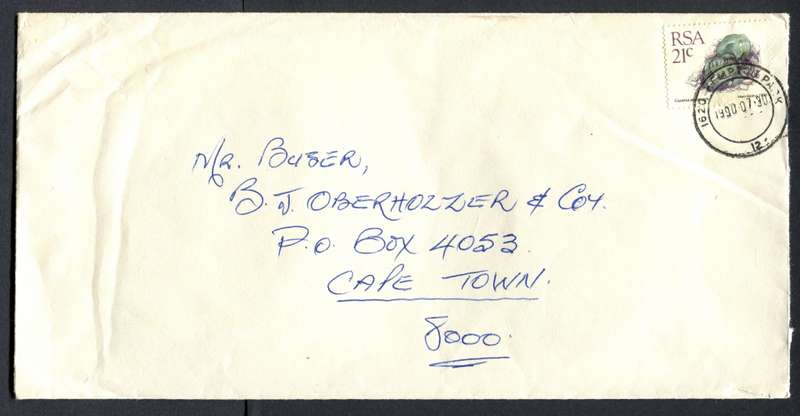 RSA
21c
1620 KEMPTON PARK
1990-07-30
12
Mr. BUSER,
B. J. OBERHOLZZER & Coy.
P.O. BOX 4053
CAPE TOWN.
8000.